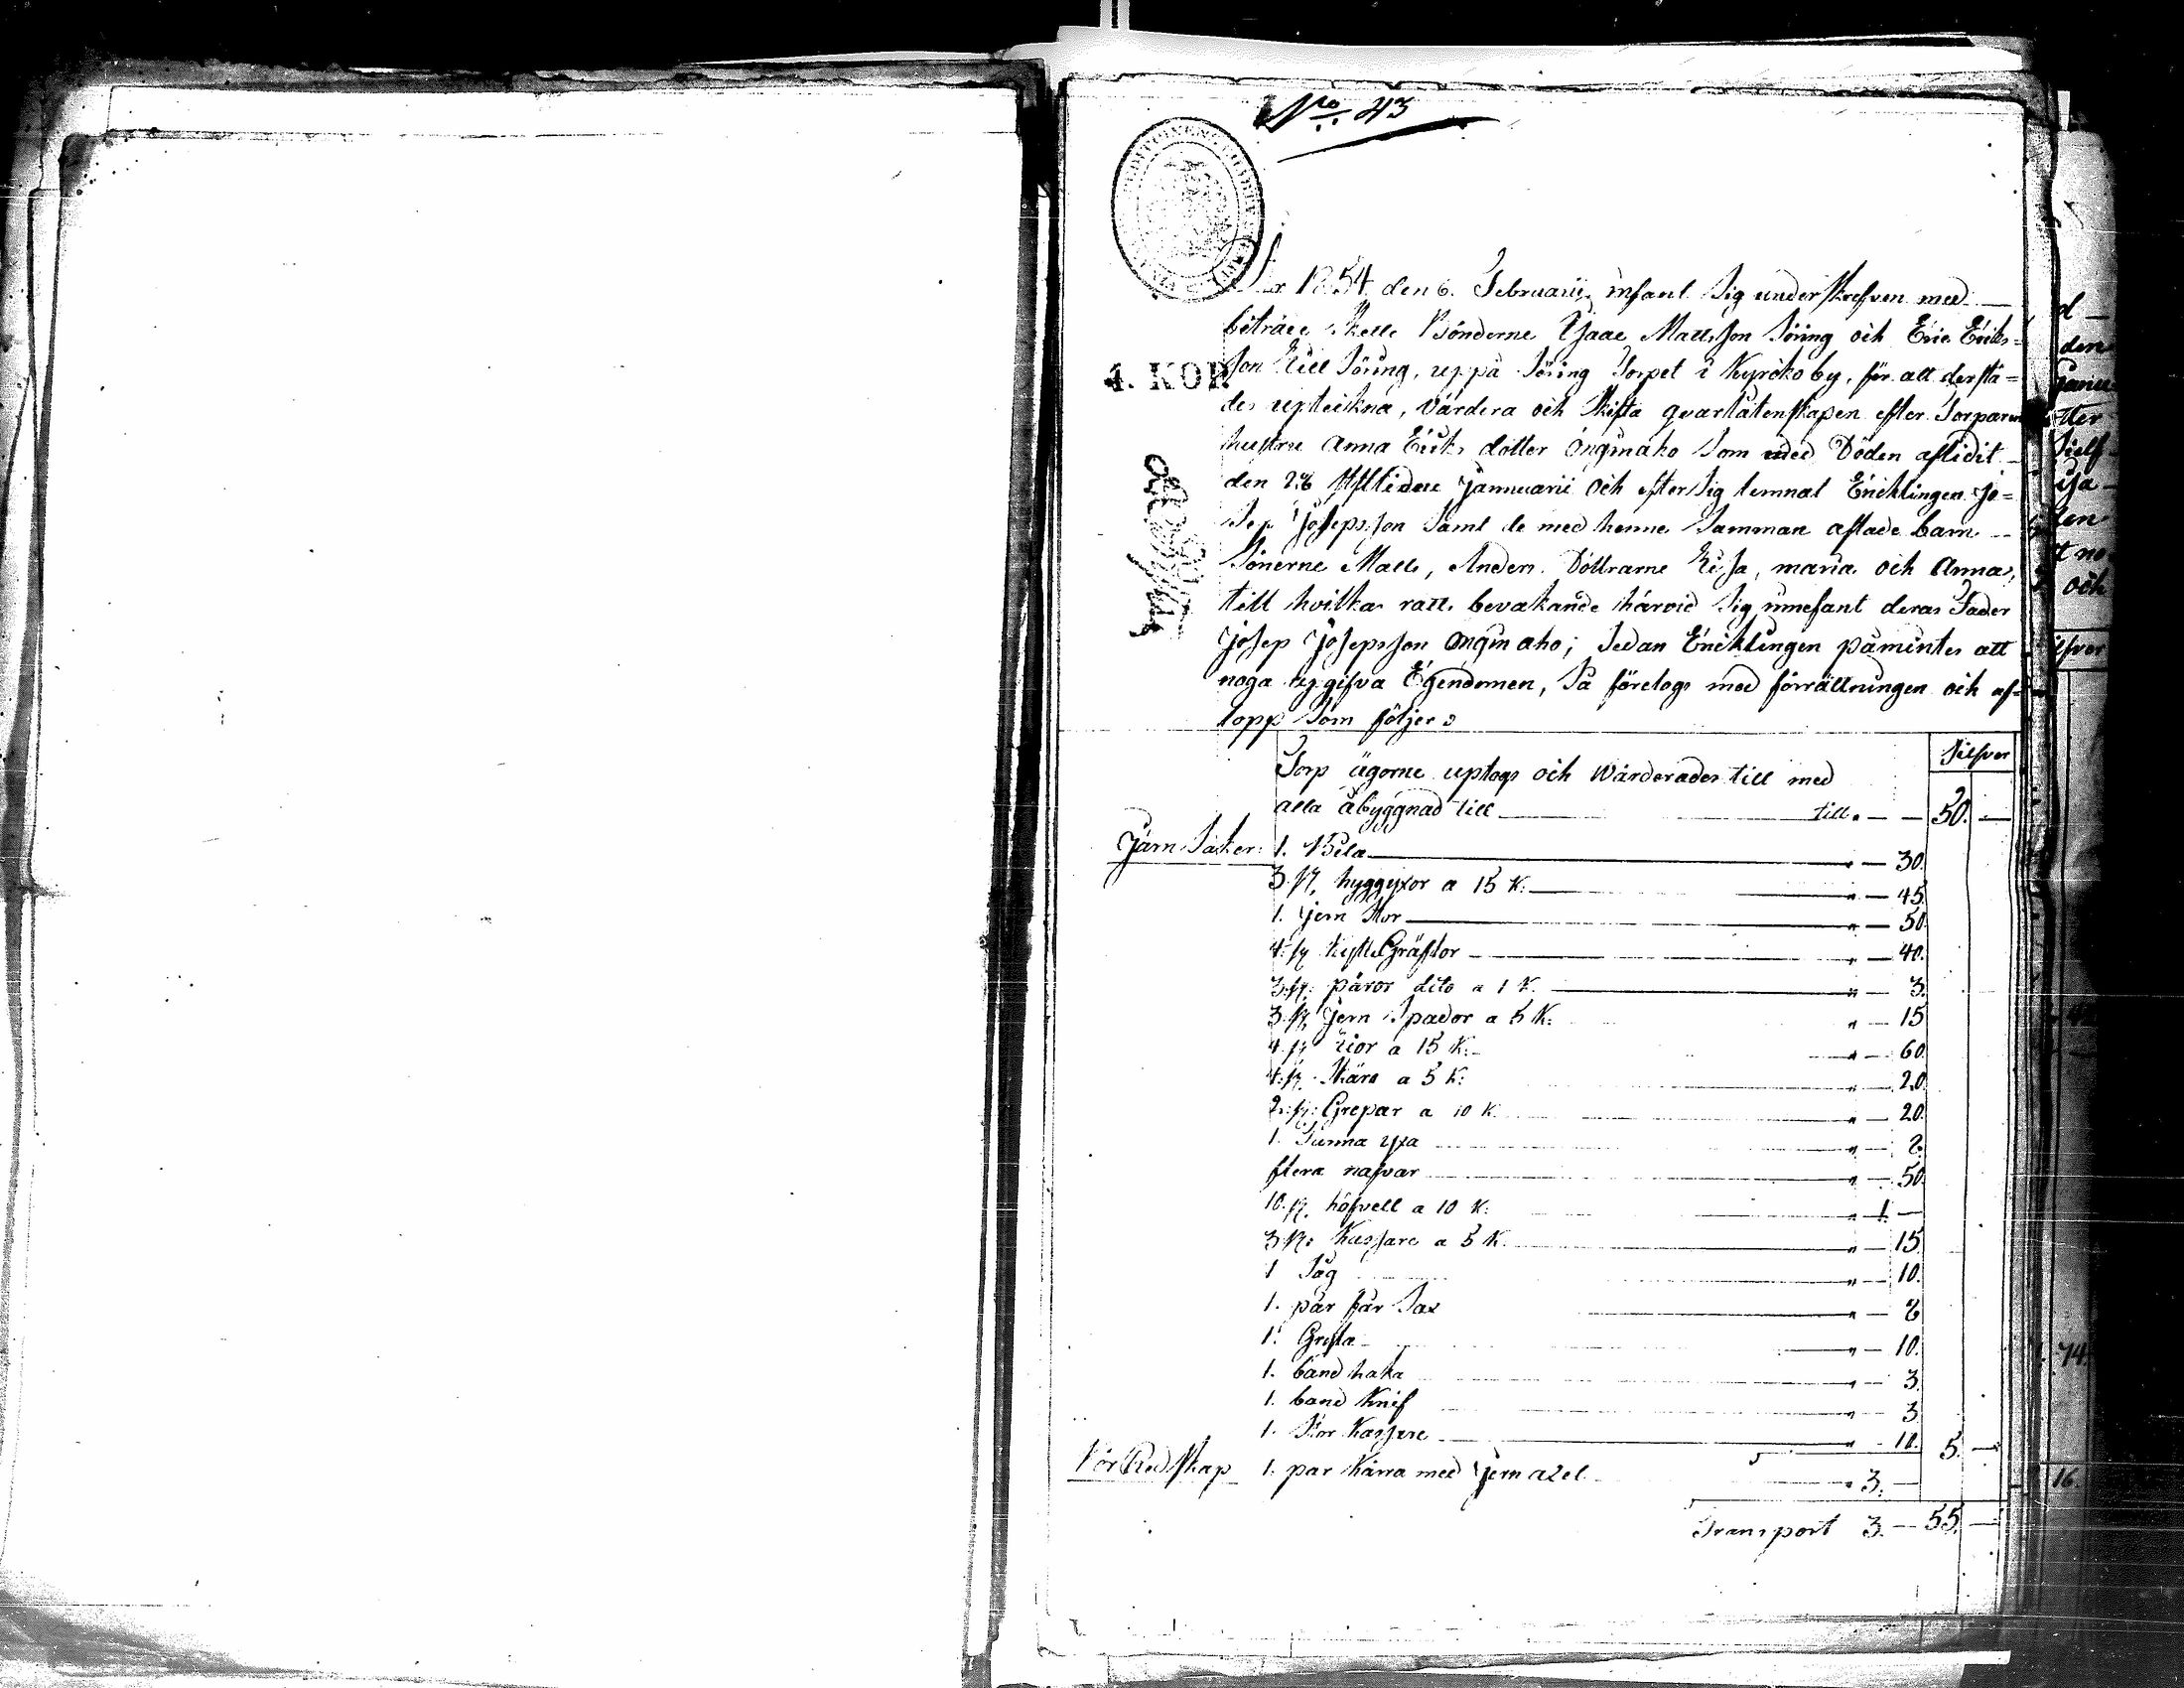 No 43
År 1854 den 6. Februarii infant Sig underskrefven med
biträde utaf Bönderne Isaac Mattsson Söring och Eric Erics=
son Lill Söring, uppå Söring Torpet i Kyrcko by, för att derstä=
des upteckna, värdera och skifta qvarlåtenskapen efter Torparen
hustru Anna Ericks dotter Ongin aho Som med Döden aflidit
den 26 sistlidne Jannuarii och efter Sig lemnat Encklingen Jo=
sep Josepsson samt de med henne samman aflade barn
Sönerne Matts, Anders. Döttrarne Lisa, maria och Anna,
till hvilkas rätts bevakande härvid Sig innefant deras Fader
Josep Josepsson Ongin aho; Sedan Encklingen påmintes att
noga uppgifva Egendomen, Så företogs med förrättningen och af=
lopp Som följer:
4. KOP
Silfver
Torp ägorne uptogs och Wärderades till med
alla åbyggnad till till. — 50. —
Järn Saker: 1. Bila " — 30.
3. st. huggyxor a 15 K. " — 45.
1. jern stör " — 50.
4. st Gräftor " — 40.
3. st: päror dito a 1 K. " — 3.
3. st. Jern Spador a 5 K: " — 15
4. st Lior a 15 K: " — 60.
4. st. Skäro a 5 K: " — 20.
2. st: Grepar a 10 K. " — 20.
1. Tunna yxa " — 2.
flera nafvar " — 50.
10. st. höfvell a 10 K: " 1. —
3 st: Kassare a 5 K. " — 15.
1 Såg " — 10.
1. par får Sax " — 2
1. Grysta " — 10.
1. band haka " — 3.
1. band Knif " — 3.
1. Stor Kassare " — 10. 5. —
Kör Redskap 1. par Kärra med Jern axel " 3. —
Transport 3. — 55. —